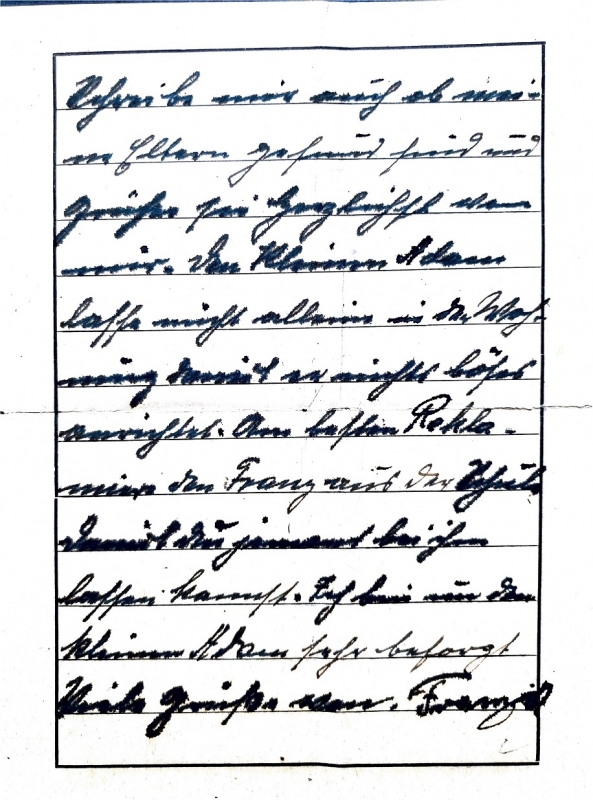 Schreibe mir auch ob mei-
ne Eltern gesund sind und
Grüße sei herzlichst von
mir. Den kleinen Adam
lasse nicht allein in der Woh-
nung damit er nichts böses
anrichtet. Am besten Rekla-
miere den Franz aus der Schule
damit du jemant bei ihm
lassen kannst. Ich bin um den
kleinen Adam sehr besorgt
Viele Grüße von.